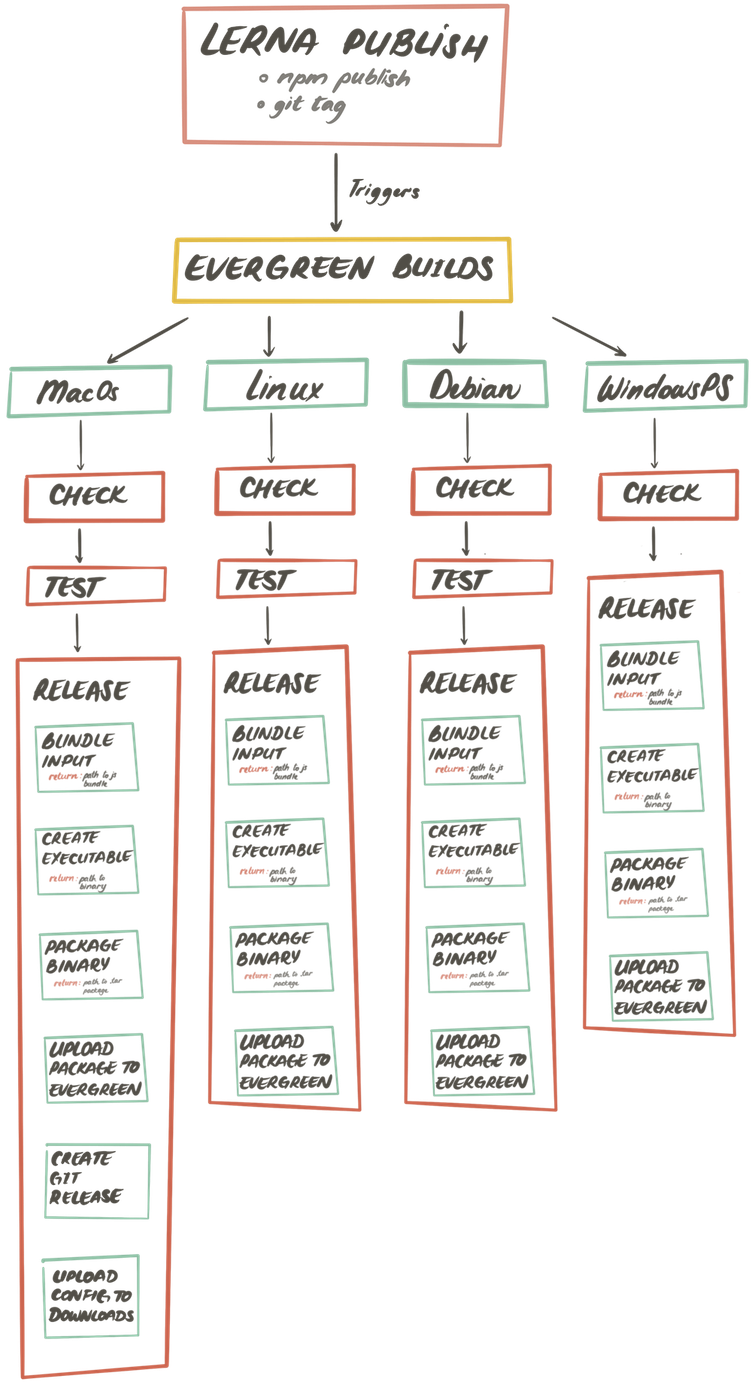 LERNA PUBLISH
npm publish
git tag
Triggers
EVERGREEN BUILDS
MacOs
CHECK
TEST
RELEASE
BUNDLE
INPUT
return: path to js
bundle
CREATE
EXECUTABLE
return: path to
binary
PACKAGE
BINARY
return: path to .tar
package
UPLOAD
PACKAGE TO
EVERGREEN
CREATE
GIT
RELEASE
UPLOAD
CONFIG TO
DOWNLOADS
Linux
CHECK
TEST
RELEASE
BUNDLE
INPUT
return: path to js
bundle
CREATE
EXECUTABLE
return: path to
binary
PACKAGE
BINARY
return: path to .tar
package
UPLOAD
PACKAGE TO
EVERGREEN
Debian
CHECK
TEST
RELEASE
BUNDLE
INPUT
return: path to js
bundle
CREATE
EXECUTABLE
return: path to
binary
PACKAGE
BINARY
return: path to .tar
package
UPLOAD
PACKAGE TO
EVERGREEN
WindowsPS
CHECK
RELEASE
BUNDLE
INPUT
return: path to js
bundle
CREATE
EXECUTABLE
return: path to
binary
PACKAGE
BINARY
return: path to .tar
package
UPLOAD
PACKAGE TO
EVERGREEN